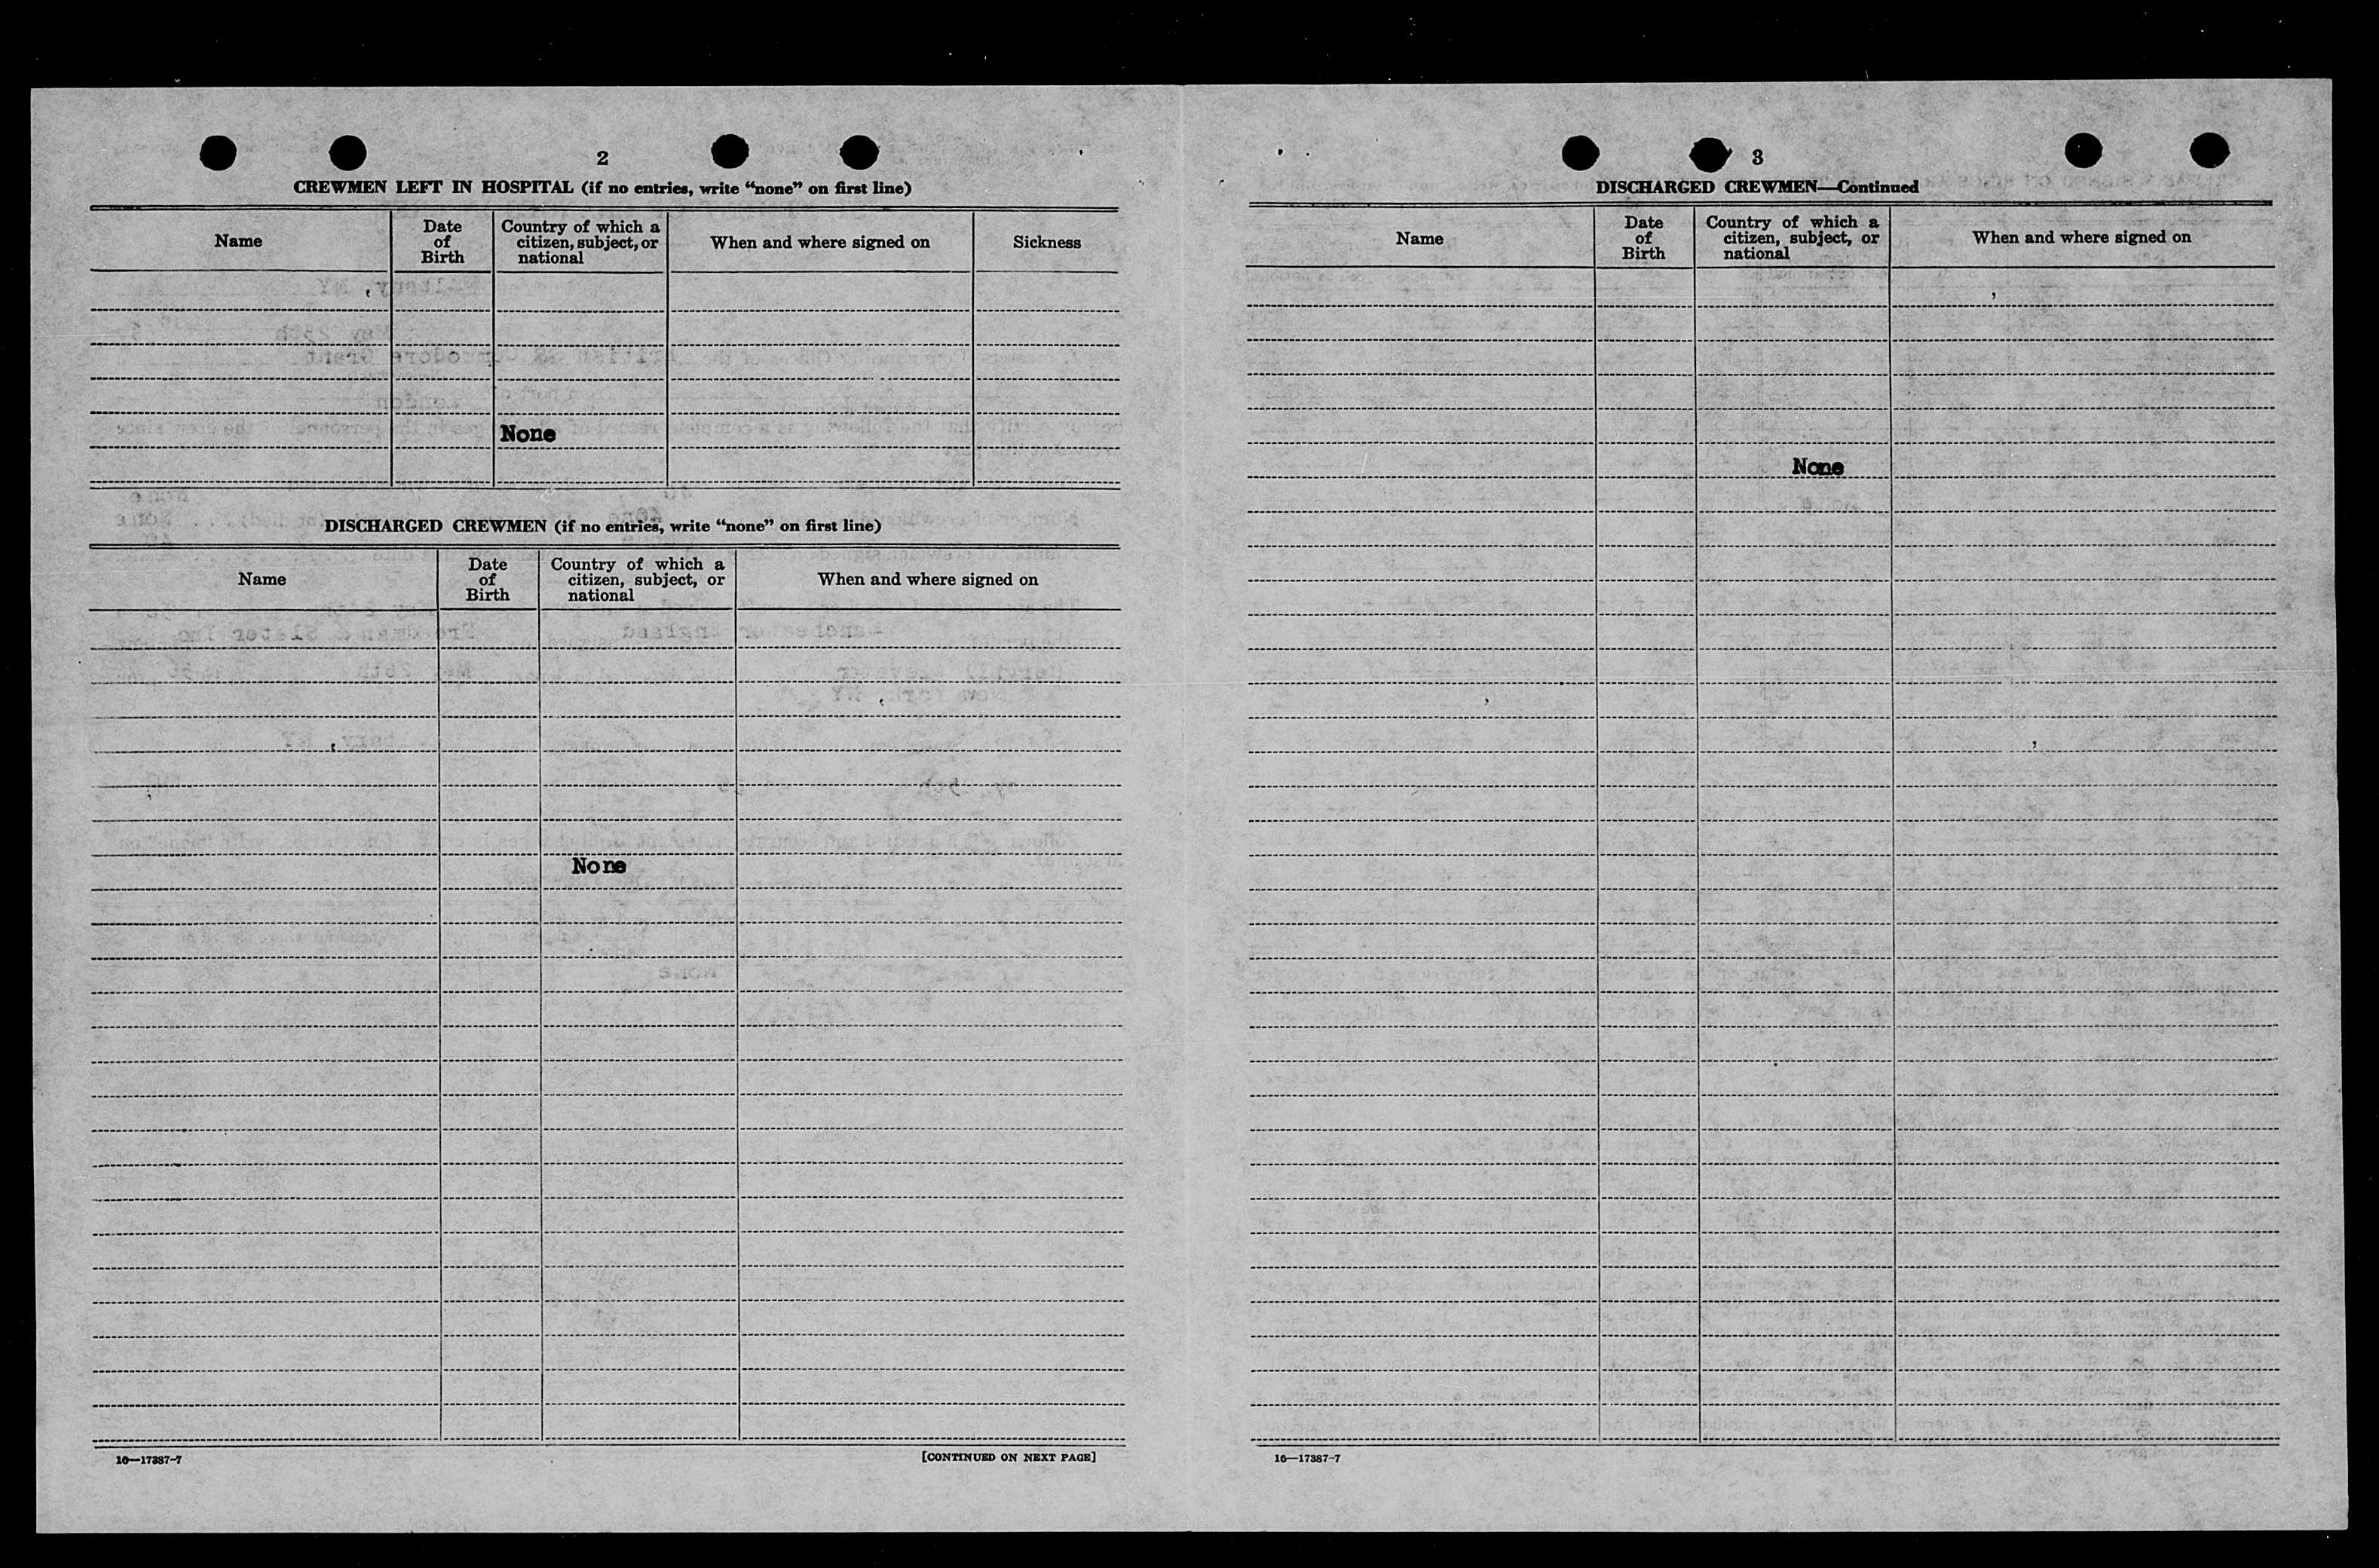 2
CREWMEN LEFT IN HOSPITAL (if no entries, write “none” on first line)
Name
Date of Birth
Country of which a citizen, subject, or national
When and where signed on
Sickness
None
DISCHARGED CREWMEN (if no entries, write “none” on first line)
Name
Date of Birth
Country of which a citizen, subject, or national
When and where signed on
None
16—17387-7
[CONTINUED ON NEXT PAGE]
3
DISCHARGED CREWMEN—Continued
Name
Date of Birth
Country of which a citizen, subject, or national
When and where signed on
None
16—17387-7